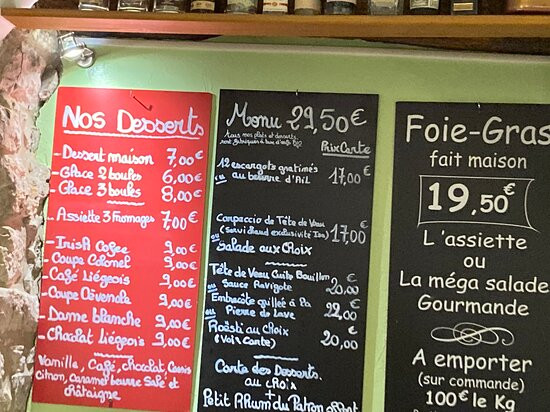 Nos Desserts
- Dessert maison 7,00€
- Glace 2 boules 6,00€
- Glace 3 boules 8,00€
- Assiette 3 Fromages 7,00€
- Irish Cofee 9,00€
- Coupe Colonel 9,00€
- Café Liégeois 9,00€
- Coupe Cévenole 9,00€
- Dame blanche 9,00€
- Chocolat Liégeois 9,00€
Vanille, Café, chocolat, Cassis
Citron, Caramel beurre Salé et
châtaigne
Menu 29,50€
tous nos plats et desserts
Prix Carte
12 escargots gratinés
au beurre d'Ail 17,00€
Carpaccio de Tête de Veau
ou (Servi chaud exclusivité Ion) 17,00€
Salade aux choix
Tête de Veau Cuite Bouillon
ou Sauce Ravigote 20,00€
Entrecôte grillée à la
ou Pierre de Lave 22,00€
Roësti au choix
(Voir Carte) 20,00€
Carte des Desserts
au choix
+
Petit Rhum du Patron offert
Foie-Gras
fait maison
19,50€
L'assiette
ou
La méga salade
Gourmande
A emporter
(sur commande)
100€ le Kg